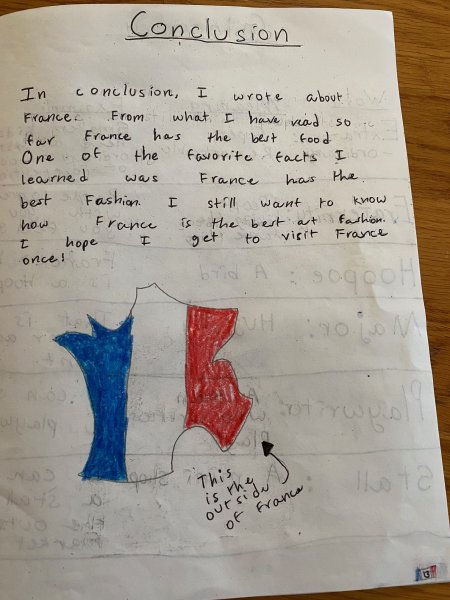 Conclusion
In conclusion, I wrote about
France. From what I have read so
far France has the best food
One of the favorite facts I
learned was France has the
best Fashion. I still want to know
how France is the best at fashion.
I hope I get to visit France
once!
This
is the
outside
of France